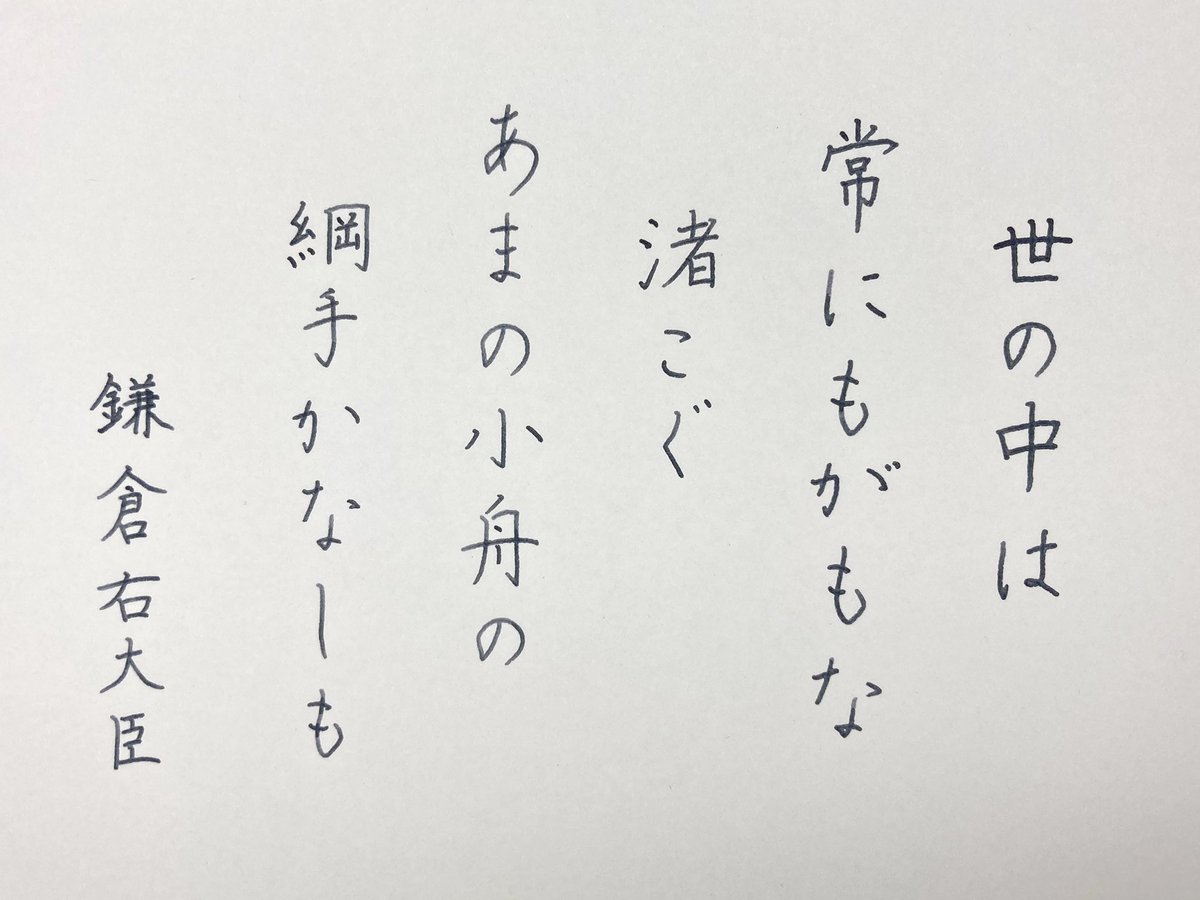 世の中は
常にもがもな
渚こぐ
あまの小舟の
綱手かなしも
鎌倉右大臣